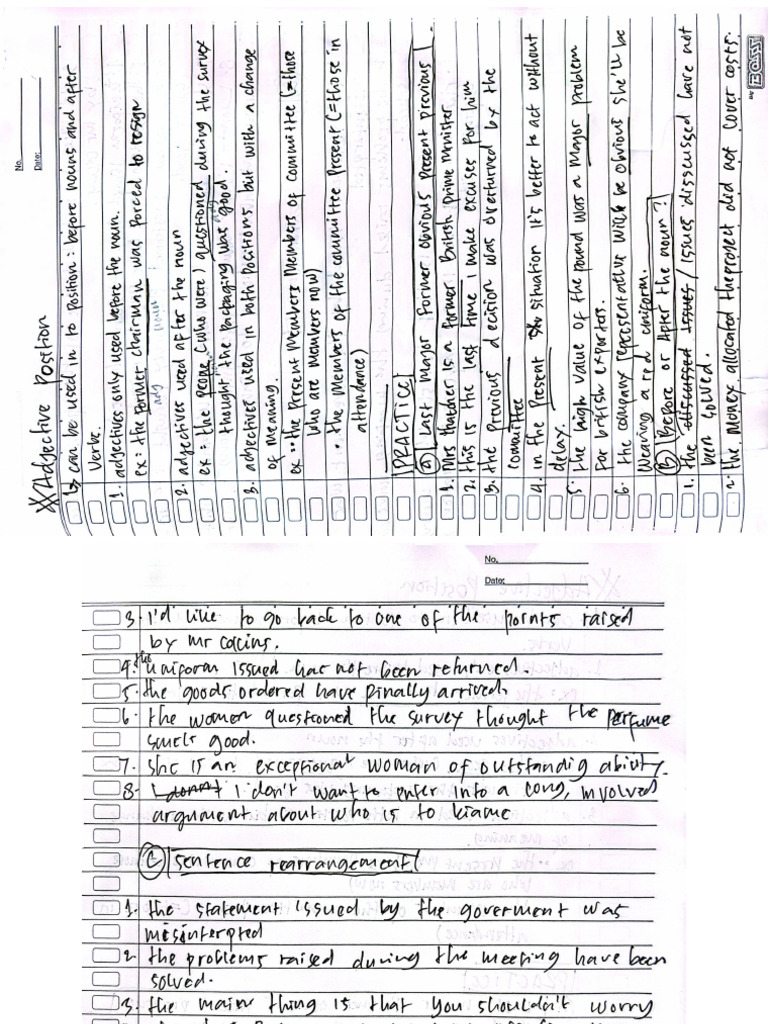 No.
Date:
BOSS
XX Adjective Position
↳ can be used in to Position: before nouns and after
verbs.
1. adjectives only used before the noun.
ex: the former chairman was forced to resign
adj
2. adjectives used after the noun
ex: the people (who were) questioned during the survey
thought the packaging was good.
3. adjectives used in both positions but with a change
of meaning.
ex: • the present members of committee (= those
who are members now)
• the members of the committee present (= those in
attendance)
PRACTICE
(A) Last major former obvious present previous
1. Mrs thatcher is a former British prime minister
2. this is the last time I make excuses for him
3. the previous decision was overturned by the
committee
4. in the present situation it's better to act without
delay.
5. the high value of the pound was a major problem
for british exporters.
6. the company representative will be obvious she'll be
wearing a red uniform.
(B) Before or After the noun?
1. the discussed issues / issues discussed have not
been solved.
2. the money allocated the project did not cover costs.
No.
Date:
3. i'd like to go back to one of the points raised
by mr collins.
4. the uniform issued has not been returned.
5. the goods ordered have finally arrived.
6. the women questioned the survey thought the perfume
smels good.
7. she is an exceptional woman of outstandig ability.
8. I don't i don't want to enter into a long, involved
argument about who is to blame
(C) sentence rearrangement
1. the statement issued by the goverment was
misinterpted
2. the problems raised during the meeting have been
solved.
3. the main thing is that you shouldn't worry